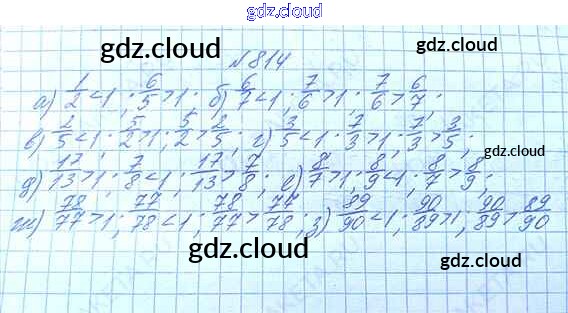 gdz.cloud
gdz.cloud
gdz.cloud
№ 814
а) 1/2 < 1; 6/5 > 1; б) 6/7 < 1; 7/6 > 1; 7/6 > 6/7;
в) 2/5 < 1; 5/2 > 1; 5/2 > 2/5; г) 3/5 < 1; 7/3 > 1; 7/3 > 3/5;
gdz.cloud
gdz.cloud
д) 17/13 > 1; 7/8 < 1; 17/13 > 7/8; е) 8/7 > 1; 8/9 < 1; 8/7 > 8/9;
ж) 78/77 > 1; 77/78 < 1; 78/77 > 77/78; з) 89/90 < 1; 90/89 > 1; 90/89 > 89/90
gdz.cloud
gdz.cloud